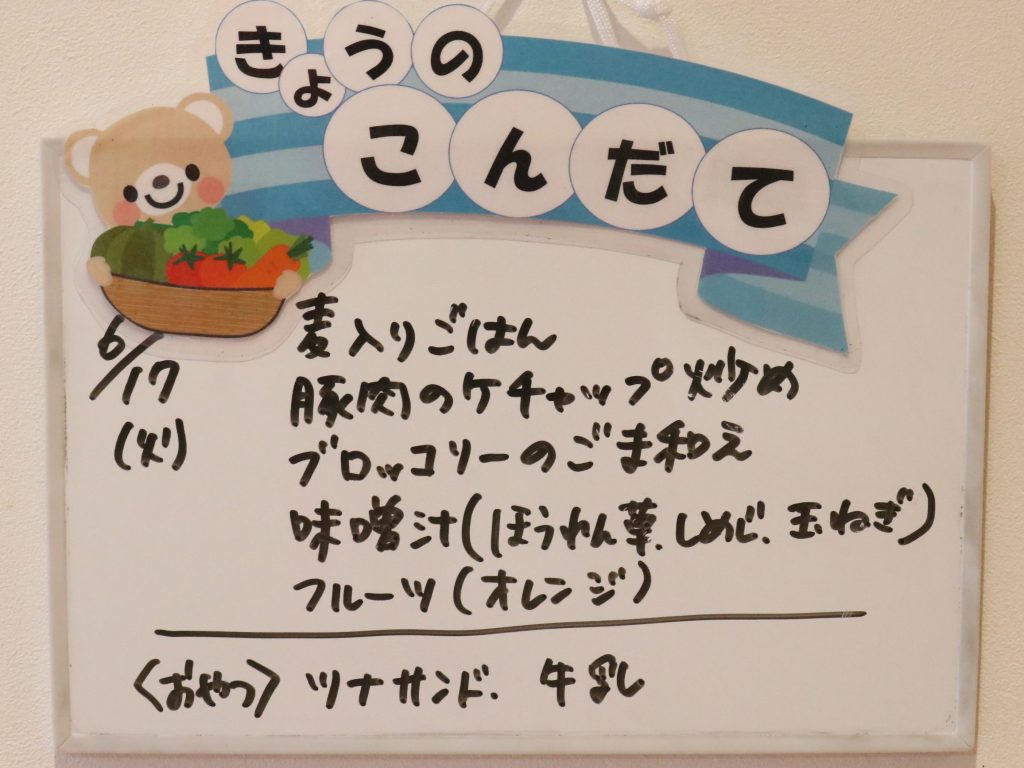 きょうの
こんだて
6/17
(火)
麦入りごはん
豚肉のケチャップ炒め
ブロッコリーのごま和え
味噌汁(ほうれん草、しめじ、玉ねぎ)
フルーツ(オレンジ)
〈おやつ〉ツナサンド、牛乳